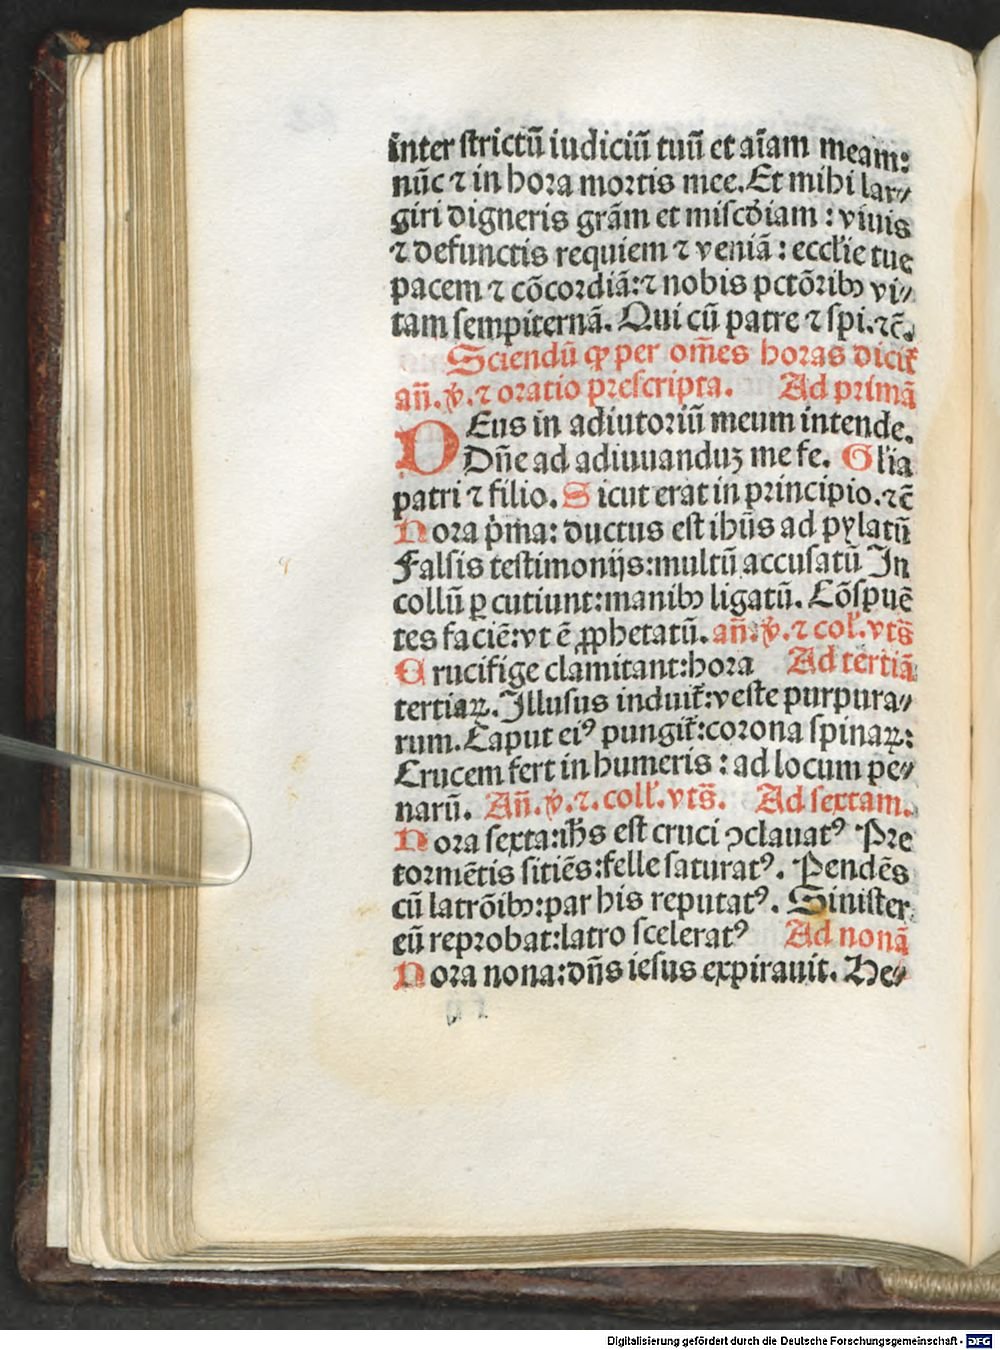 inter strictū iudiciū tuū et aīam meam:
nūc ⁊ in hora mortis mee. Et mihi lar⸗
giri digneris grām et miscdiam : viuis
⁊ defunctis requiem ⁊ veniā : eccƚie tue
pacem ⁊ cōcordiā: ⁊ nobis pctōribꝫ vi⸗
tam sempiternā. Qui cū patre ⁊ spi. ⁊c̄.
Sciendū ꝙ per om̄es horas dicit᷑
an̄. ꝟ. ⁊ oratio prescripta. Ad primā
DEus in adiutoriū meum intende.
Dn̄e ad adiuuanduꝫ me fe. Glīa
patri ⁊ filio. Sicut erat in principio. ⁊c̄
Hora pͥma: ductus est ihūs ad pylatū
Falsis testimonijs: multū accusatū In
collū ꝑcutiunt: manibꝫ ligatū. Cōspuē
tes faciē: vt ē ꝓphetatū. an̄. ꝟ. ⁊ colƚ. vts̄
Crucifige clamitant: hora Ad tertiā
tertiaꝝ. Illusus induit᷑: veste purpura⸗
rum. Caput eiꝰ pungit᷑: corona spinaꝝ:
Crucem fert in humeris : ad locum pe⸗
narū. An̄. ꝟ. ⁊. collƚ. vts̄. Ad sextam.
Hora sexta: ih̄s est cruci ꝯclauatꝰ Pre
tormētis sitiēs: felle saturatꝰ. Pendēs
cū latrōibꝫ: par his reputatꝰ. Sinister
eū reprobat: latro sceleratꝰ Ad nonā
Hora nona: dn̄s iesus expirauit. He⸗
Digitalisierung gefördert durch die Deutsche Forschungsgemeinschaft - DFG